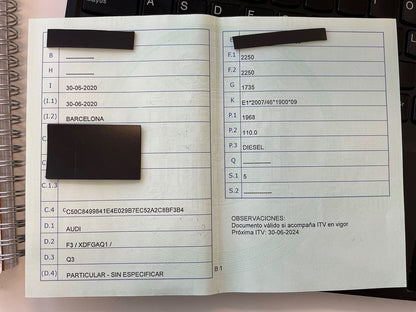 B -----------
H -----------
I 30-06-2020
(I.1) 30-06-2020
(I.2) BARCELONA
C.1.3
C.4 CC50C8499841E4E029B7EC52A2C8BF3B4
D.1 AUDI
D.2 F3 / XDFGAQ1 /
D.3 Q3
(D.4) PARTICULAR - SIN ESPECIFICAR
F.1 2250
F.2 2250
G 1735
K E1*2007/46*1900*09
P.1 1968
P.2 110.0
P.3 DIESEL
Q -----------
S.1 5
S.2 -----------
OBSERVACIONES:
Documento válido si acompaña ITV en vigor
Próxima ITV: 30-06-2024